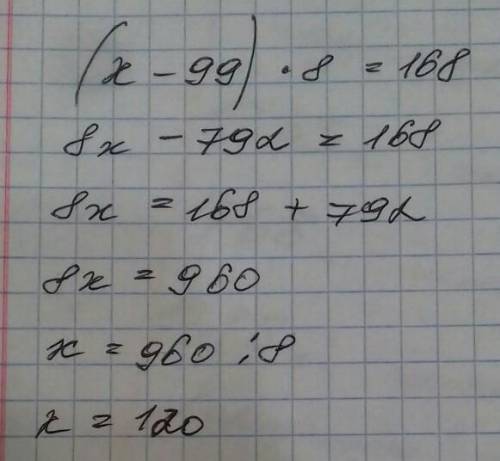 (x - 99) · 8 = 168
8x - 792 = 168
8x = 168 + 792
8x = 960
x = 960 : 8
x = 120